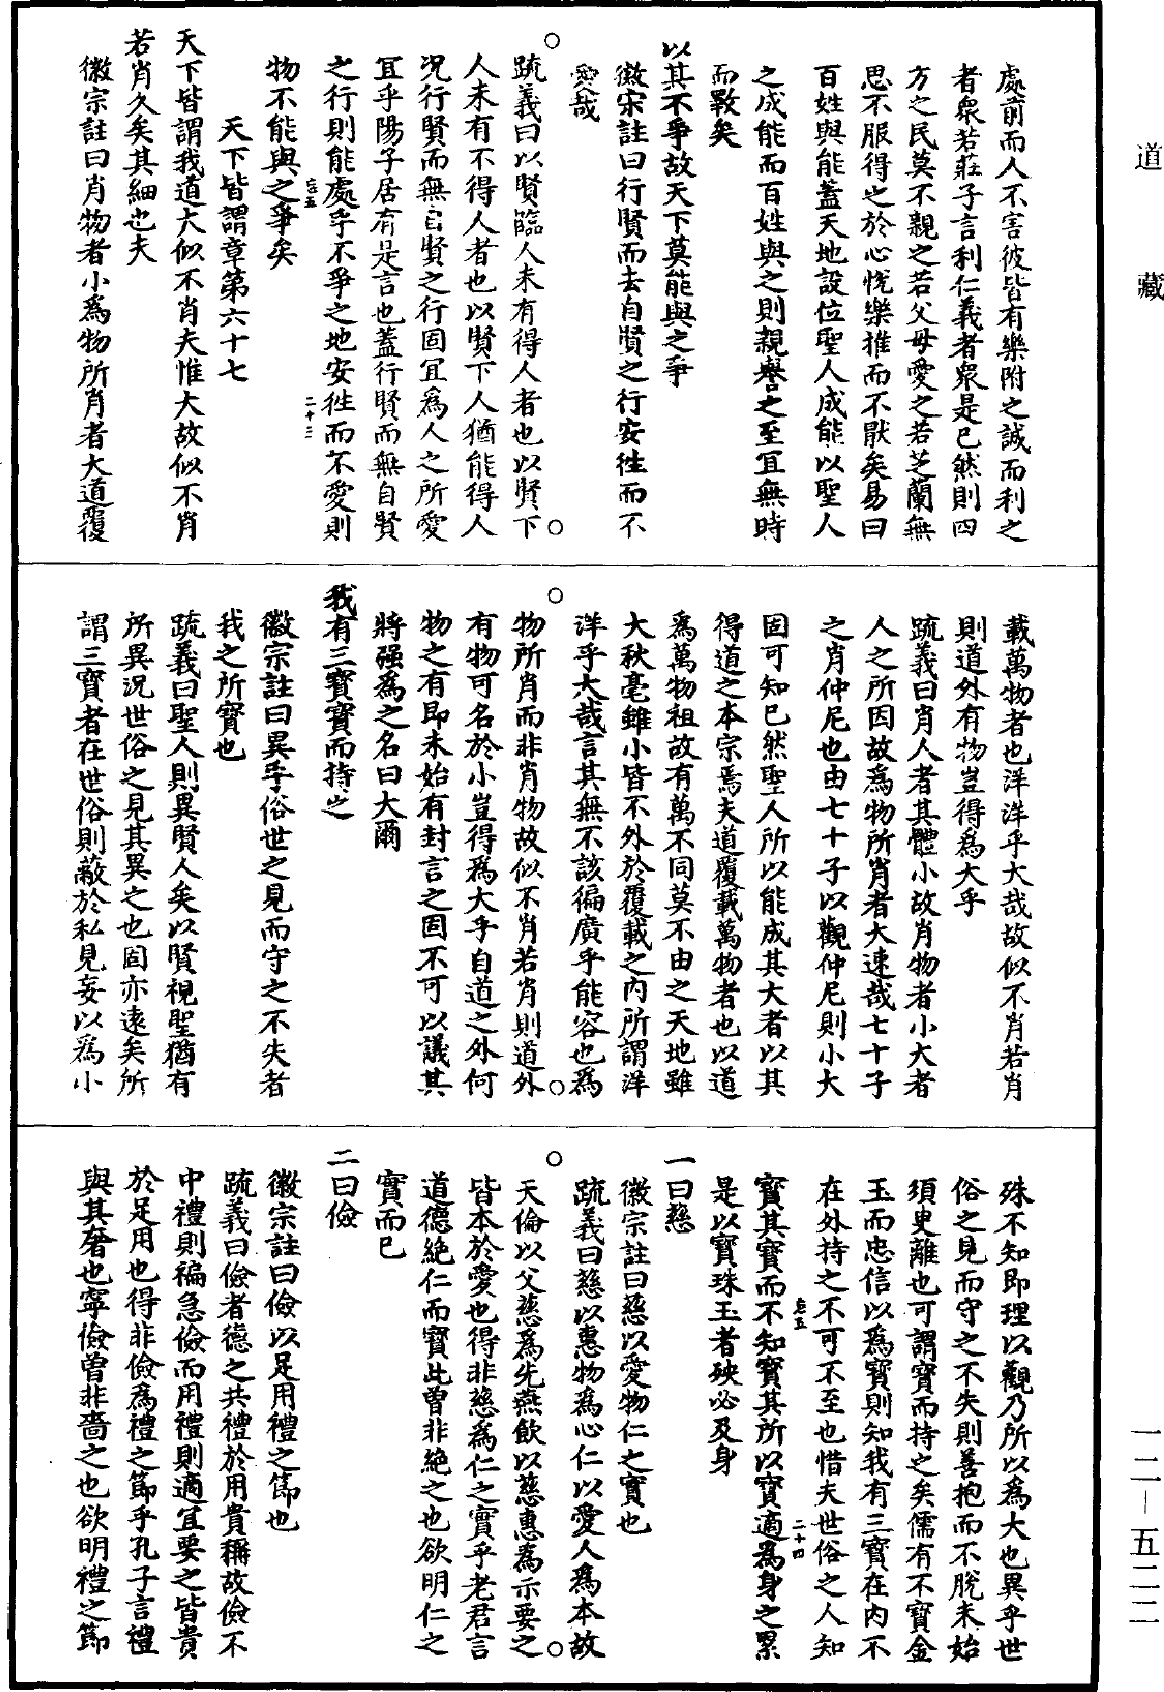 道藏
處前而人不害彼皆有樂附之誠而利之
者衆若莊子言利仁義者衆是已然則四
方之民莫不親之若父母愛之若芝蘭無
思不服得之於心悅樂推而不猒矣易曰
百姓與能蓋天地設位聖人成能以聖人
之成能而百姓與之則親譽之至宜無時
而斁矣
以其不爭故天下莫能與之爭
徽宗註曰行賢而去自賢之行安徃而不
愛哉
疏義曰以賢臨人未有得人者也以賢下
人未有不得人者也以賢下人猶能得人
况行賢而無自賢之行固宜爲人之所愛
宜乎陽子居有是言也蓋行賢而無自賢
之行則能處乎不爭之地安徃而不愛則
二十三
物不能與之爭矣
天下皆謂章第六十七
天下皆謂我道大似不肖夫惟大故似不肖
若肖久矣其細也夫
徽宗註曰肖物者小爲物所肖者大道覆
載萬物者也洋洋乎大哉故似不肖若肖
則道外有物豈得爲大乎
疏義曰肖人者其體小故肖物者小大者
人之所因故爲物所肖者大逮哉七十子
之肖仲尼也由七十子以觀仲尼則小大
固可知已然聖人所以能成其大者以其
得道之本宗焉夫道覆載萬物者也以道
爲萬物祖故有萬不同莫不由之天地雖
大秋毫雖小皆不外於覆載之内所謂洋
洋乎大哉言其無不該徧廣乎能容也爲
物所肖而非肖物故似不肖若肖則道外
有物可名於小豈得爲大乎自道之外何
物之有即未始有封言之固不可以議其
將强爲之名曰大爾
我有三寶寶而持之
徽宗註曰異乎俗世之見而守之不失者
我之所寶也
疏義曰聖人則異賢人矣以賢視聖猶有
所異况世俗之見其異之也固亦遠矣所
謂三寶者在世俗則蔽於私見妄以爲小
殊不知即理以觀乃所以爲大也異乎世
俗之見而守之不失則善抱而不脫未始
須臾離也可謂寶而持之矣儒有不寶金
玉而忠信以爲寶則知我有三寶在内不
在外持之不可不至也惜夫世俗之人知
二十四
寶其寶而不知寶其所以寶適爲身之累
是以寶珠玉者殃必及身
一曰慈
徽宗註曰慈以愛物仁之實也
疏義曰慈以惠物爲心仁以愛人爲本故
天倫以父慈爲先燕飲以慈惠爲示要之
皆本於愛也得非慈爲仁之實乎老君言
道德絶仁而寶此曾非絶之也欲明仁之
實而已
二曰儉
徽宗註曰儉以足用禮之節也
疏義曰儉者德之共禮於用貴稱故儉不
中禮則褊急儉而用禮則適宜要之皆貴
於足用也得非儉爲禮之節乎孔子言禮
與其奢也寧儉曾非嗇之也欲明禮之節
一二—五二二